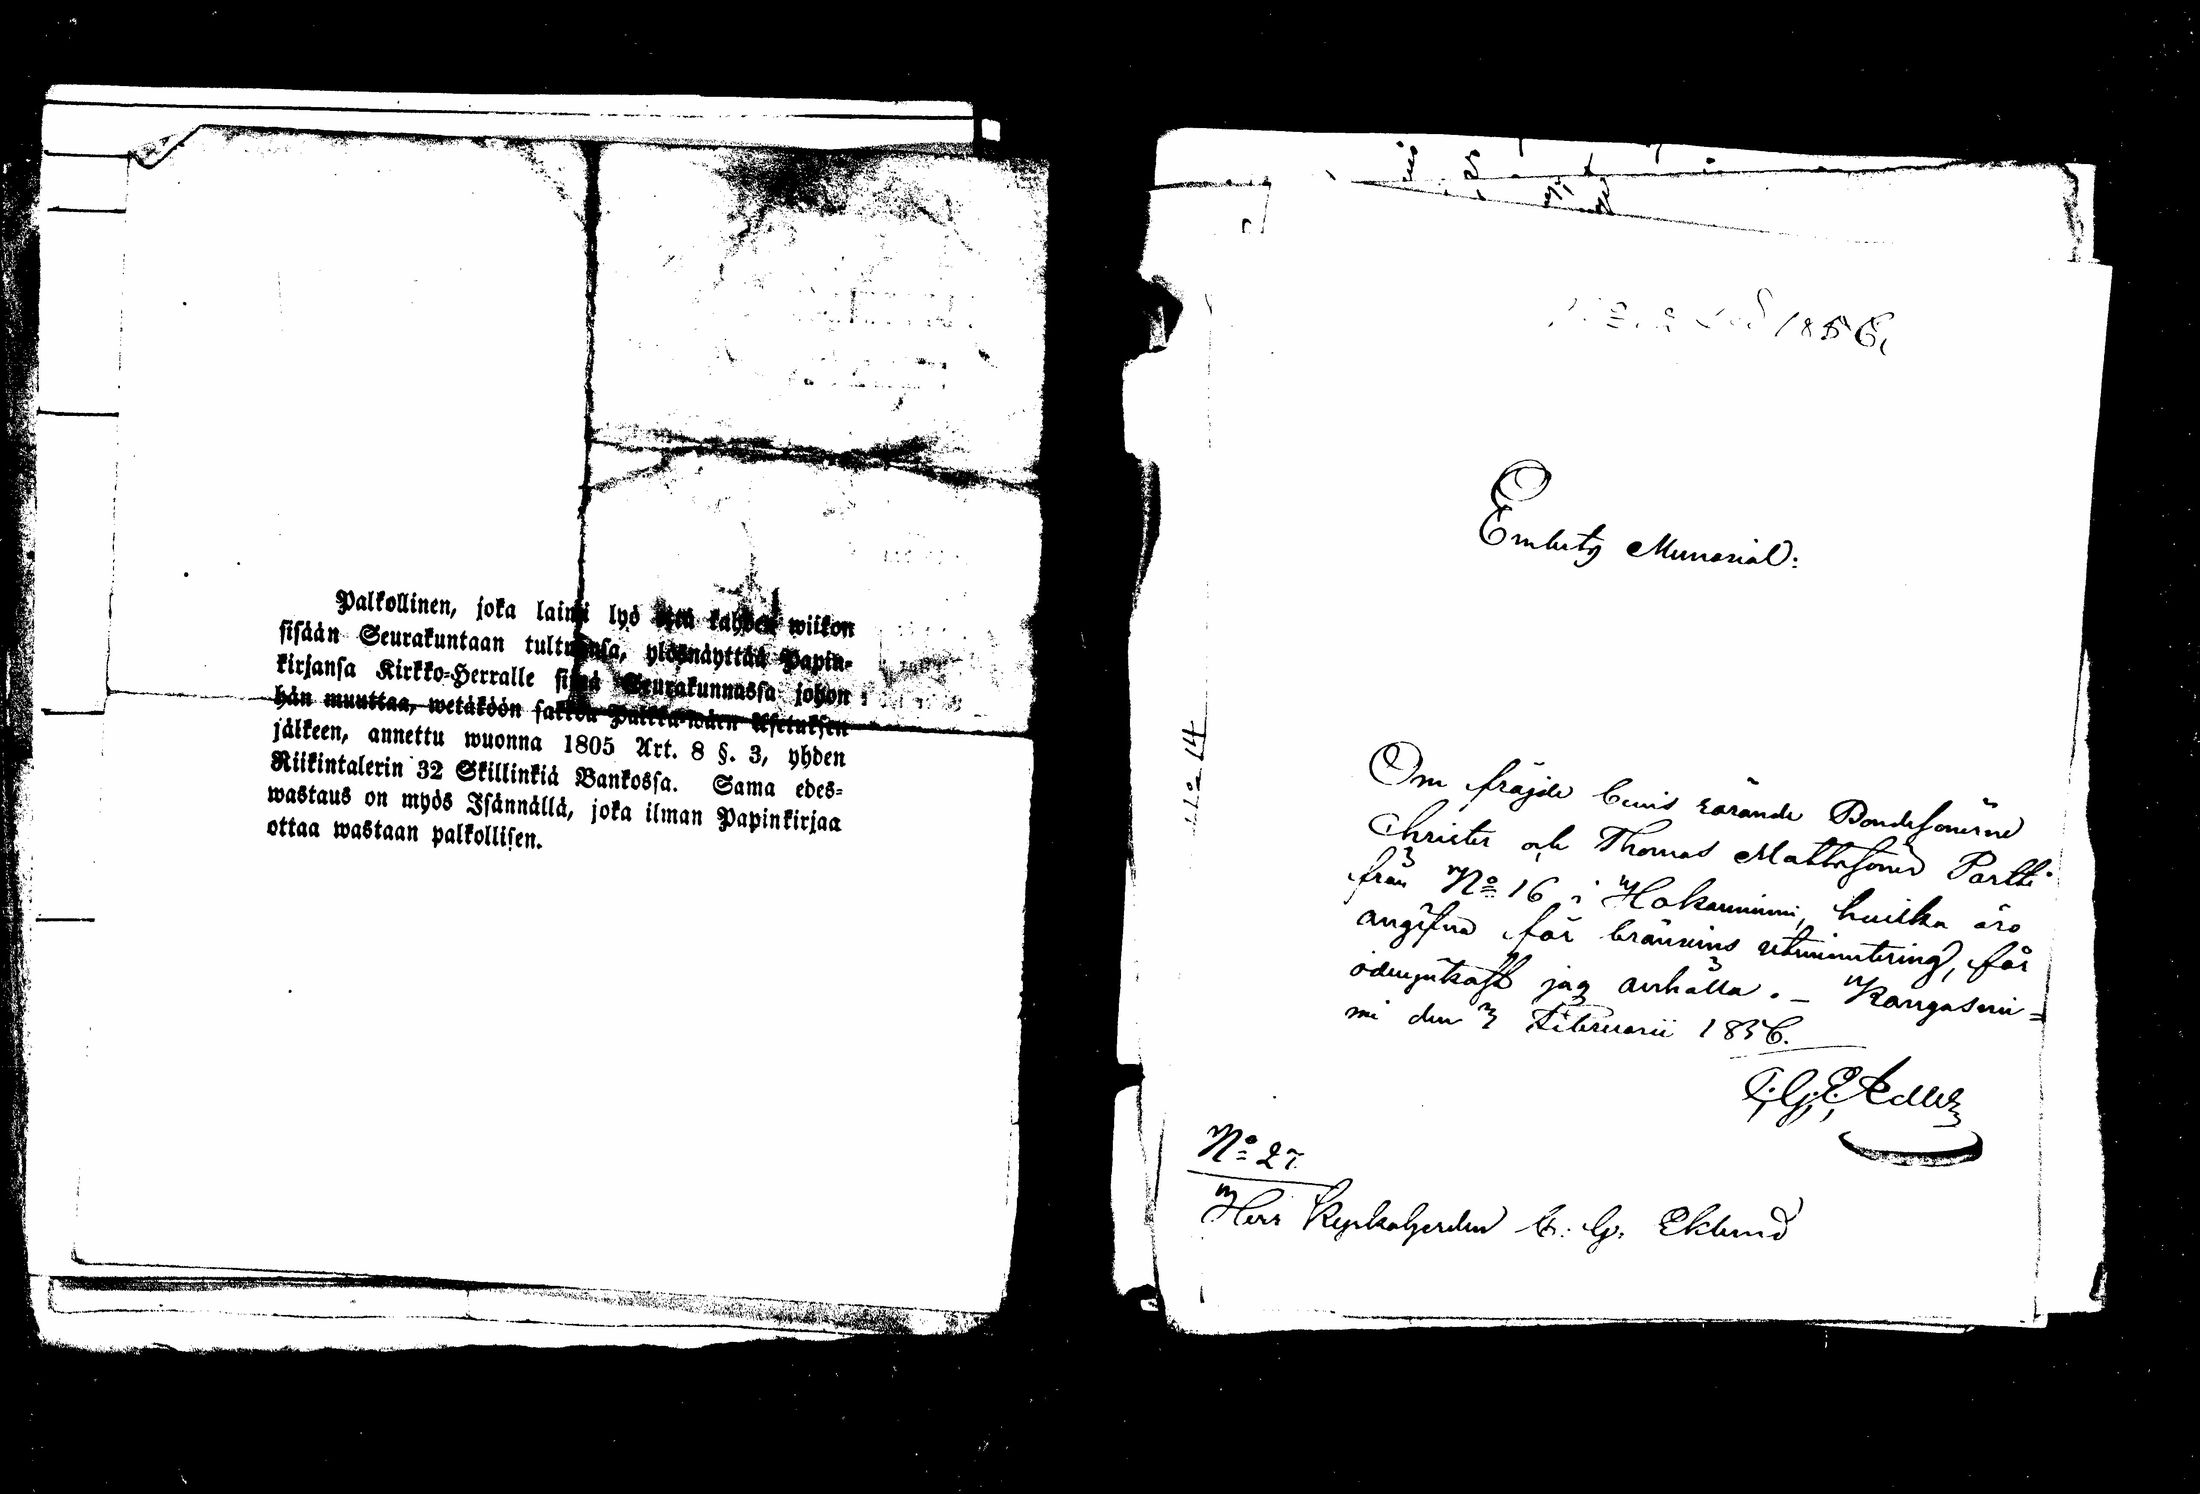 Palkollinen, joka laimi lyö että kahden wiikon
sisään Seurakuntaan tultuansa, ylösnäyttää Papin-
kirjansa Kirkko-Herralle siinä Seurakunnassa johon
hän muuttaa, wetäköön sakkoa Palkka-wäen Asetuksen
jälkeen, annettu wuonna 1805 Art. 8 §. 3, yhden
Riikintalerin 32 Skillinkiä Bankossa. Sama edes-
wastaus on myös Isännällä, joka ilman Papinkirjaa
ottaa wastaan palkollisen.
1856.
Embets Memorial:
Om fräjde bevis rörande Bondesönerne
Christer och Thomas Mattssöner Partti
från No 16 i Hokanniemi, hvilka äro
angifna för brännvins utminutering, får
ödmjukast jag anhålla. – Kangasnie=
mi den 3 Februarii 1856.
No 14
No 27
Herr Kyrkoherden C. G. Eklund